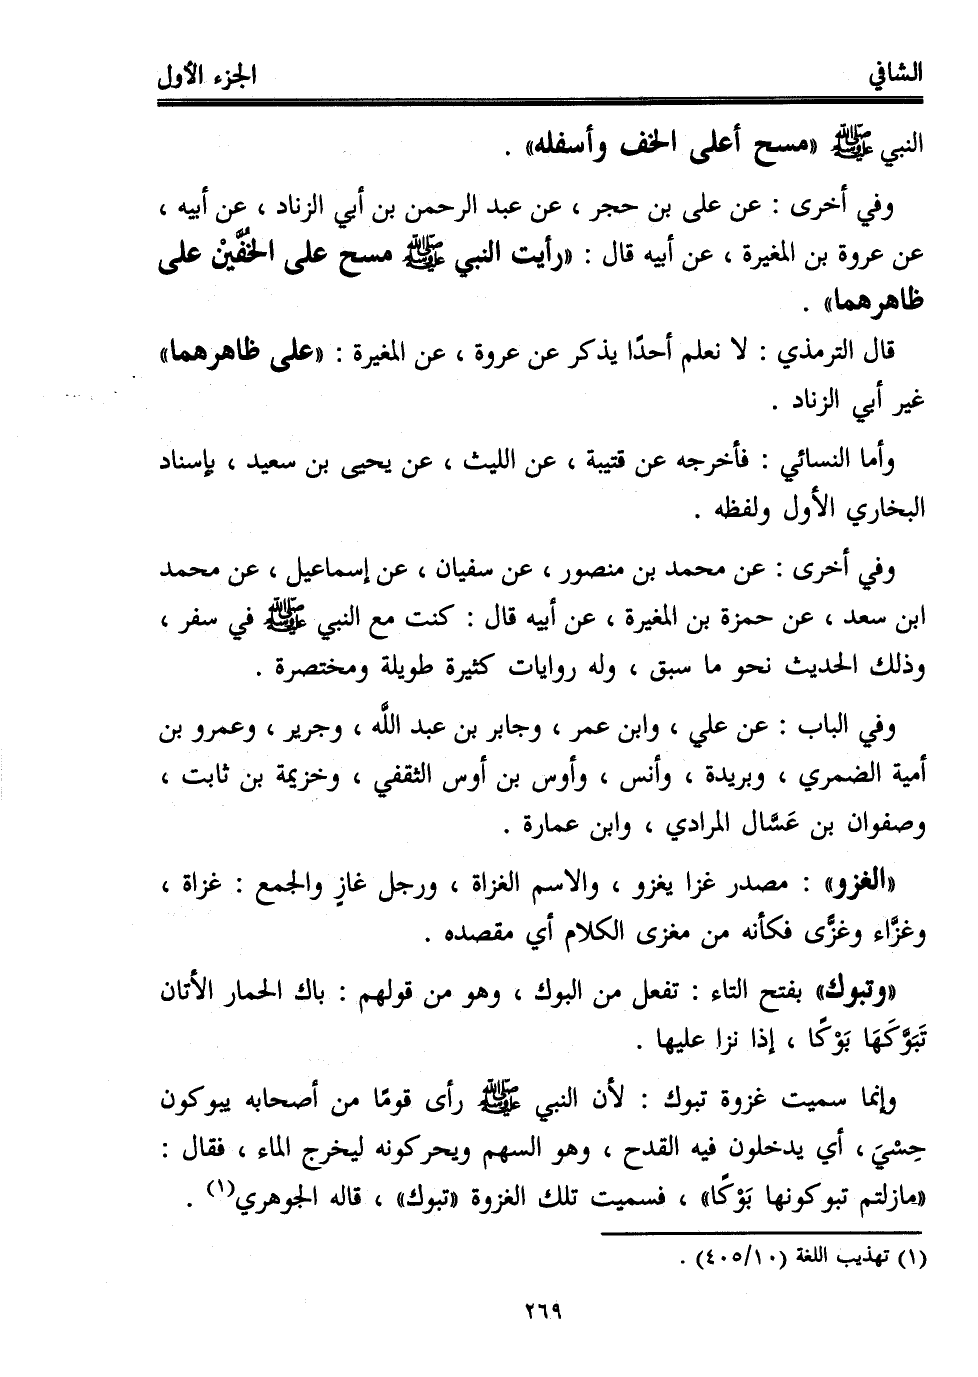 الشافي
الجزء الأول
النبي ﷺ «مسح أعلى الخف وأسفله» .
وفي أخرى : عن علي بن حجر ، عن عبد الرحمن بن أبي الزناد ، عن أبيه ،
عن عروة بن المغيرة ، عن أبيه قال : «رأيت النبي ﷺ مسح على الخُفَّيْن على
ظاهرهما» .
قال الترمذي : لا نعلم أحدًا يذكر عن عروة ، عن المغيرة : «على ظاهرهما»
غير أبي الزناد .
وأما النسائي : فأخرجه عن قتيبة ، عن الليث ، عن يحيى بن سعيد ، بإسناد
البخاري الأول ولفظه .
وفي أخرى : عن محمد بن منصور ، عن سفيان ، عن إسماعيل ، عن محمد
ابن سعد ، عن حمزة بن المغيرة ، عن أبيه قال : كنت مع النبي ﷺ في سفر ،
وذلك الحديث نحو ما سبق ، وله روايات كثيرة طويلة ومختصرة .
وفي الباب : عن علي ، وابن عمر ، وجابر بن عبد اللَّه ، وجرير ، وعمرو بن
أمية الضمري ، وبريدة ، وأنس ، وأوس بن أوس الثقفي ، وخزيمة بن ثابت ،
وصفوان بن عَسَّال المرادي ، وابن عمارة .
«الغزو» : مصدر غزا يغزو ، والاسم الغزاة ، ورجل غازٍ والجمع : غزاة ،
وغزَّاء وغزَّى فكأنه من مغزى الكلام أي مقصده .
«وتبوك» بفتح التاء : تفعل من البوك ، وهو من قولهم : باك الحمار الأتان
تَبَوَّكَهَا بَوْكًا ، إذا نزا عليها .
وإنما سميت غزوة تبوك : لأن النبي ﷺ رأى قومًا من أصحابه يبوكون
حِسْيَ ، أي يدخلون فيه القدح ، وهو السهم ويحركونه ليخرج الماء ، فقال :
«مازلتم تبوكونها بَوْكًا» ، فسميت تلك الغزوة «تبوك» ، قاله الجوهري(١) .
(١) تهذيب اللغة (٤٠٥/١٠) .
٢٦٩